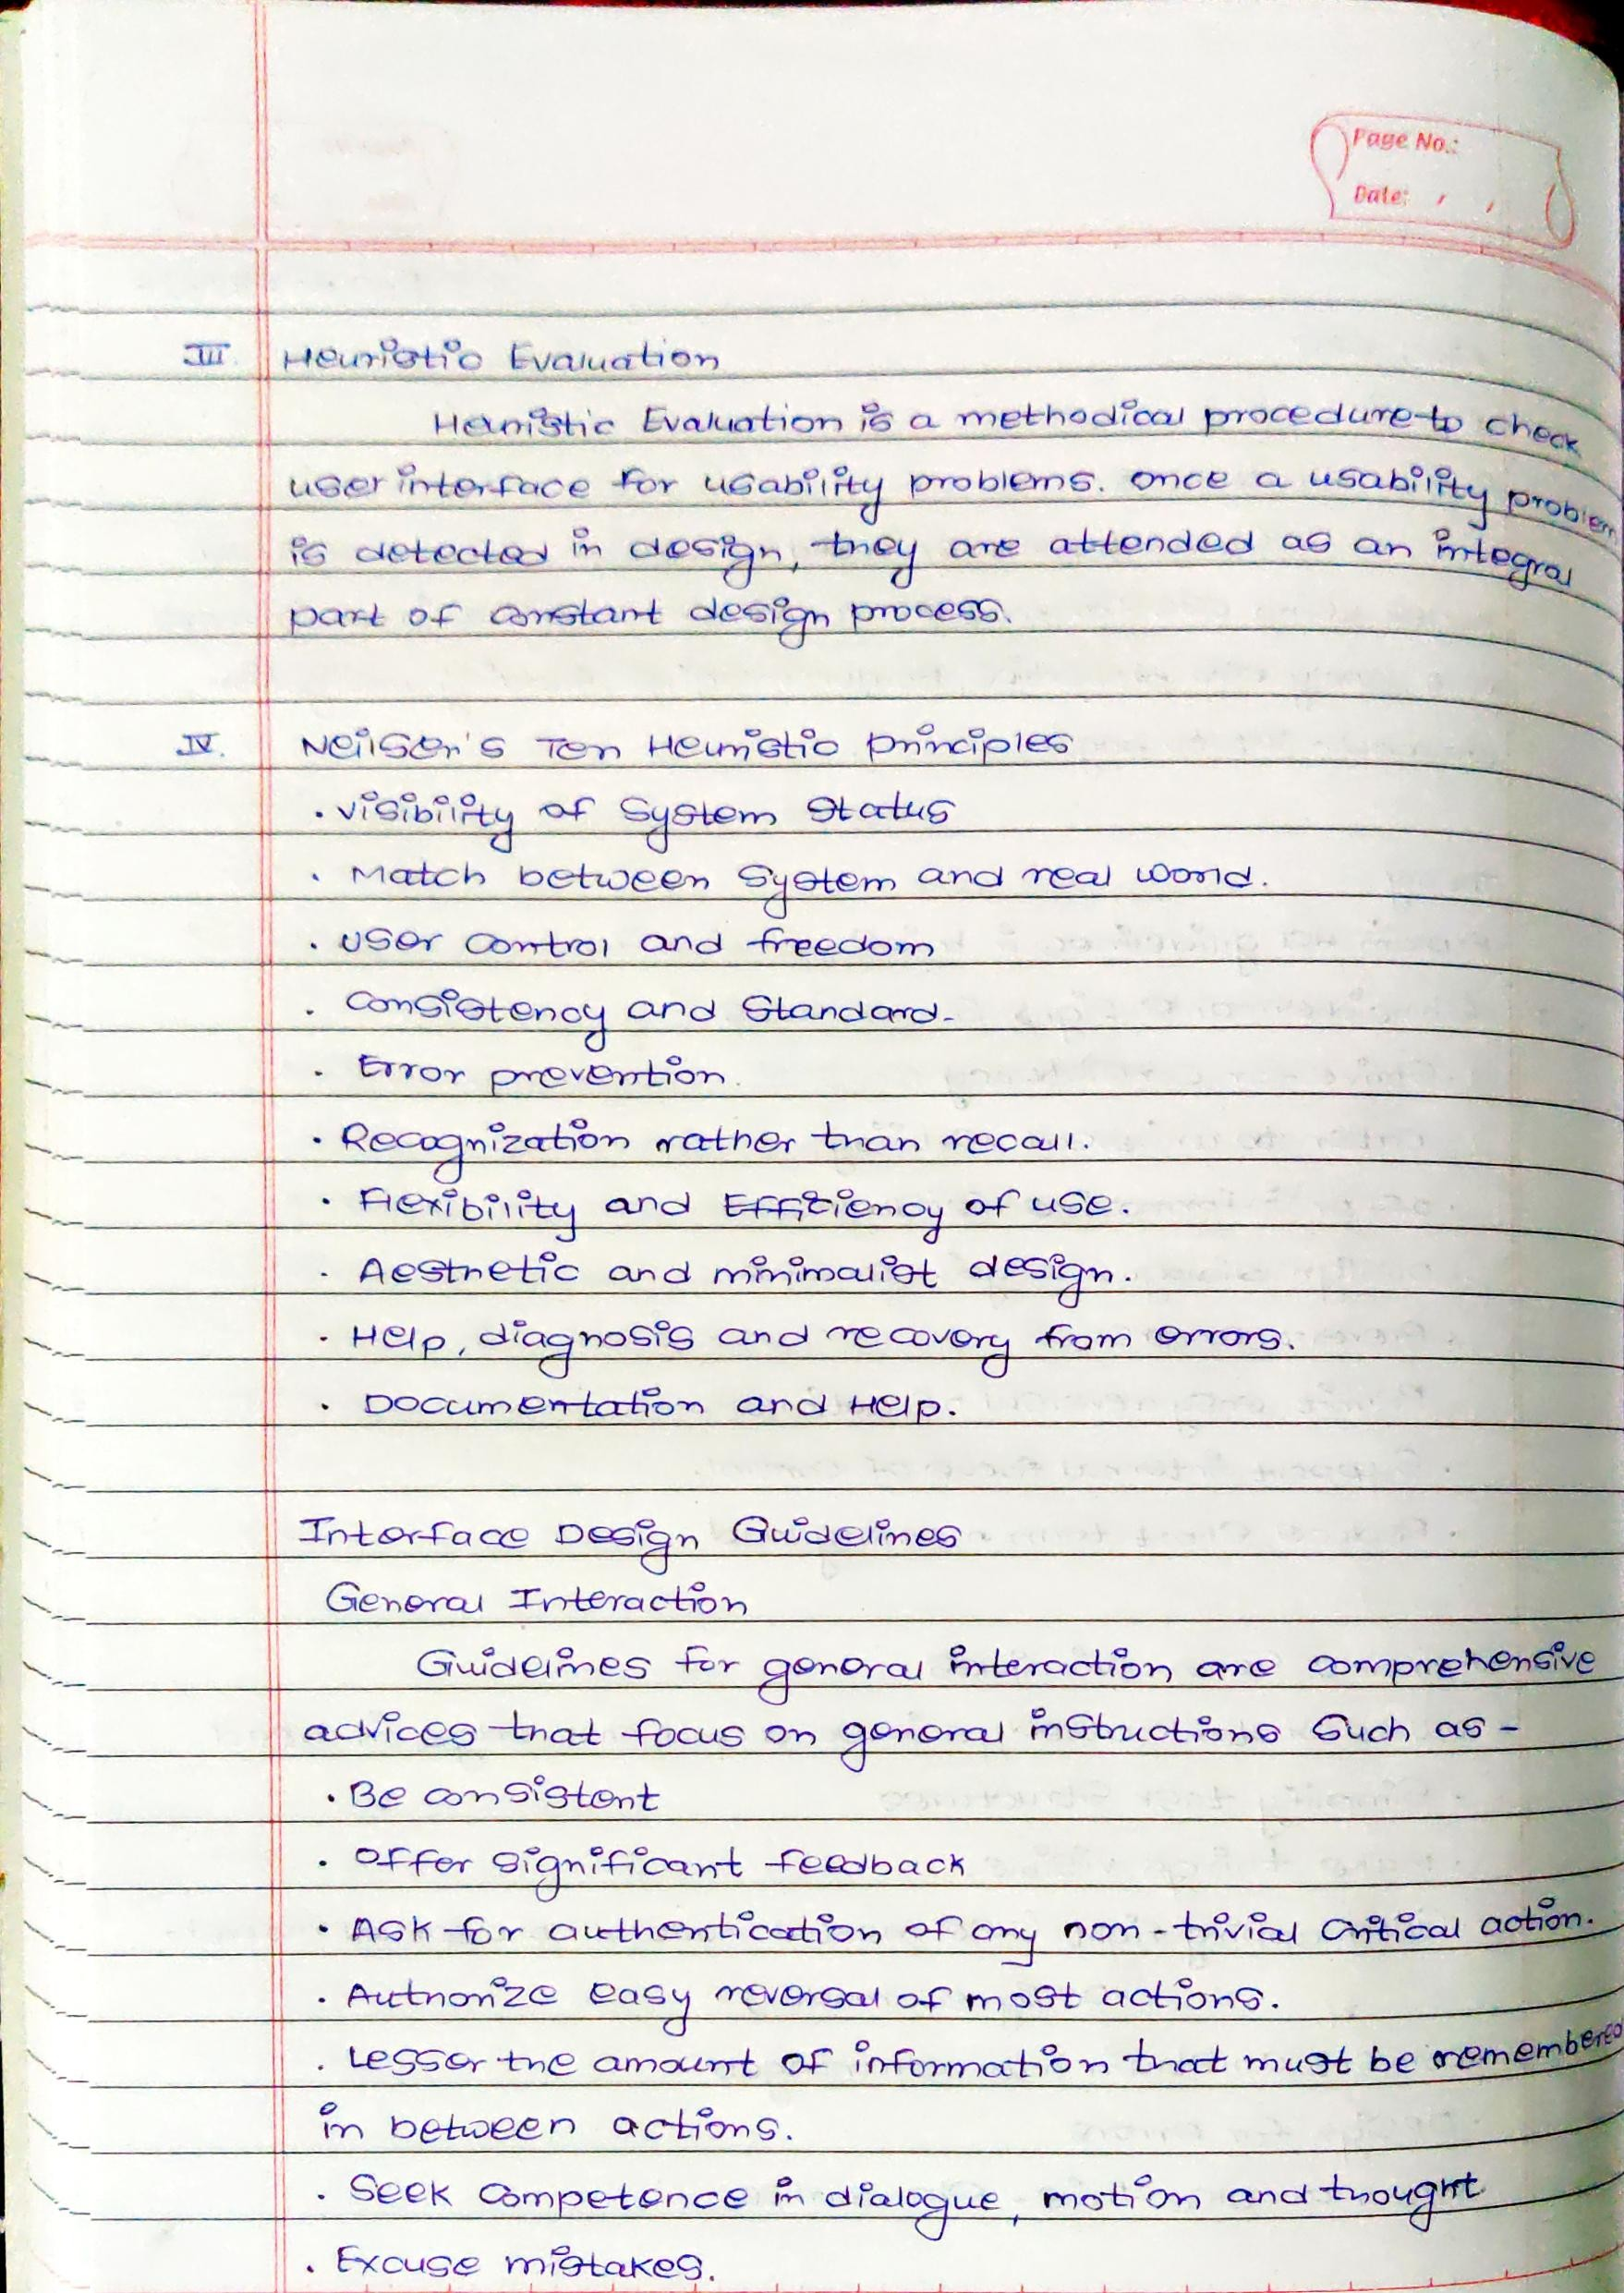 Page No.:
Date: / /
III. Heuristic Evaluation
Heuristic Evaluation is a methodical procedure to check
user interface for usability problems. once a usability problem
is detected in design, they are attended as an integral
part of constant design process.
IV. Neilser's Ten Heuristic principles
. visibility of System Status
. Match between System and real world.
. User control and freedom
. Consistency and Standard.
. Error prevention.
. Recognization rather than recall.
. Flexibility and Efficiency of use.
. Aesthetic and minimalist design.
. Help, diagnosis and recovery from errors.
. Documentation and Help.
Interface Design Guidelines
General Interaction
Guidelines for general interaction are comprehensive
advices that focus on general instructions such as -
. Be consistent
. Offer significant feedback
. Ask for authentication of any non-trivial critical action.
. Authorize easy reversal of most actions.
. Lesser the amount of information that must be remembered
in between actions.
. Seek competence in dialogue, motion and thought
. Excuse mistakes.